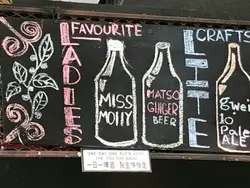 LADIES
FAVOURITE
MISS
MOLLY
MATSO
GINGER
BEER
LITE
CRAFTS
gwei
10
Pale
ALE
ONE DAY ONE BEER KEEP
THE DOCTOR AWAY
一日一啤酒